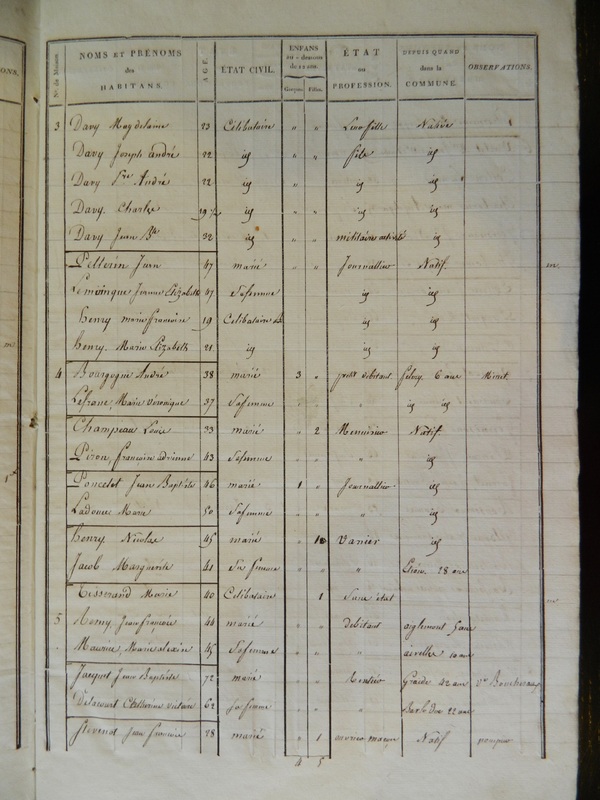 NOMS ET PRÉNOMS des HABITANS. AGE. ÉTAT CIVIL. ENFANS au-dessous de 12 ans. Garçons. Filles. ÉTAT ou PROFESSION. DEPUIS QUAND dans la COMMUNE. OBSERVATIONS.
3 Davy Magdelaine 23 Célibataire " " Leur fille Native
Davy Joseph André 22 id " " fils id
Davy André 22 id id id
Davy Charles 19 id id id
Davy Jean Bte 32 id " " militaire id
Pellerin Jean 47 marié " " Journallier Natif
Jeanne Elizabeth 47 Sa femme id id
henry marie françoise 19 Célibataire id id
henry Marie Elizabeth 21 id id id
4 Bourgogne André 38 marié 3 " petit débitant 6 ans
Marie véronique 37 Sa femme id id
Champeau Louis 33 marié " 2 Menuisier Natif
Piron, françoise adrienne 43 Sa femme " " " id
Poncelet Jean Baptiste 46 marié 1 " Journallier id
Ladouce Marie 50 Sa femme " " " id
henry Nicolas 45 marié " Vanier id
Jacob Marguerite 41 Sa femme " " " 28 ans
Tisserand Marie 40 Célibataire 1 Sans état
5 Remy Jean françois 44 marié " " débitant
Maurice, Marie 45 Sa femme " " " 10 ans
Jacquet Jean Baptiste 72 marié " " Rentier Graide 42 ans
Delacourt Catherine 62 sa femme " " " Bar le Duc 22 ans
Jean françois 28 marié " 1 ouvrier maçon Natif
4 5